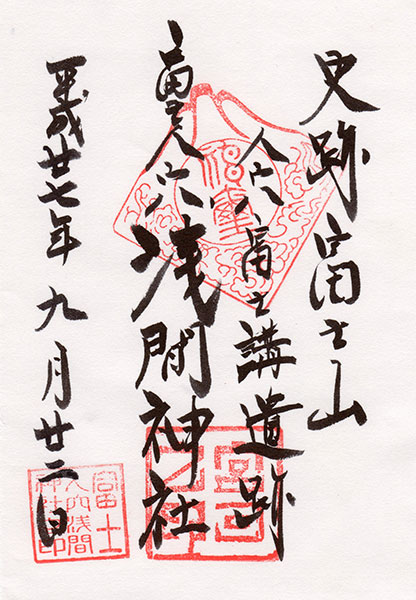 史跡富士山
人穴富士講遺跡
富士人穴浅間神社
平成廿七年九月廿二日
富士
人穴浅間
神社印